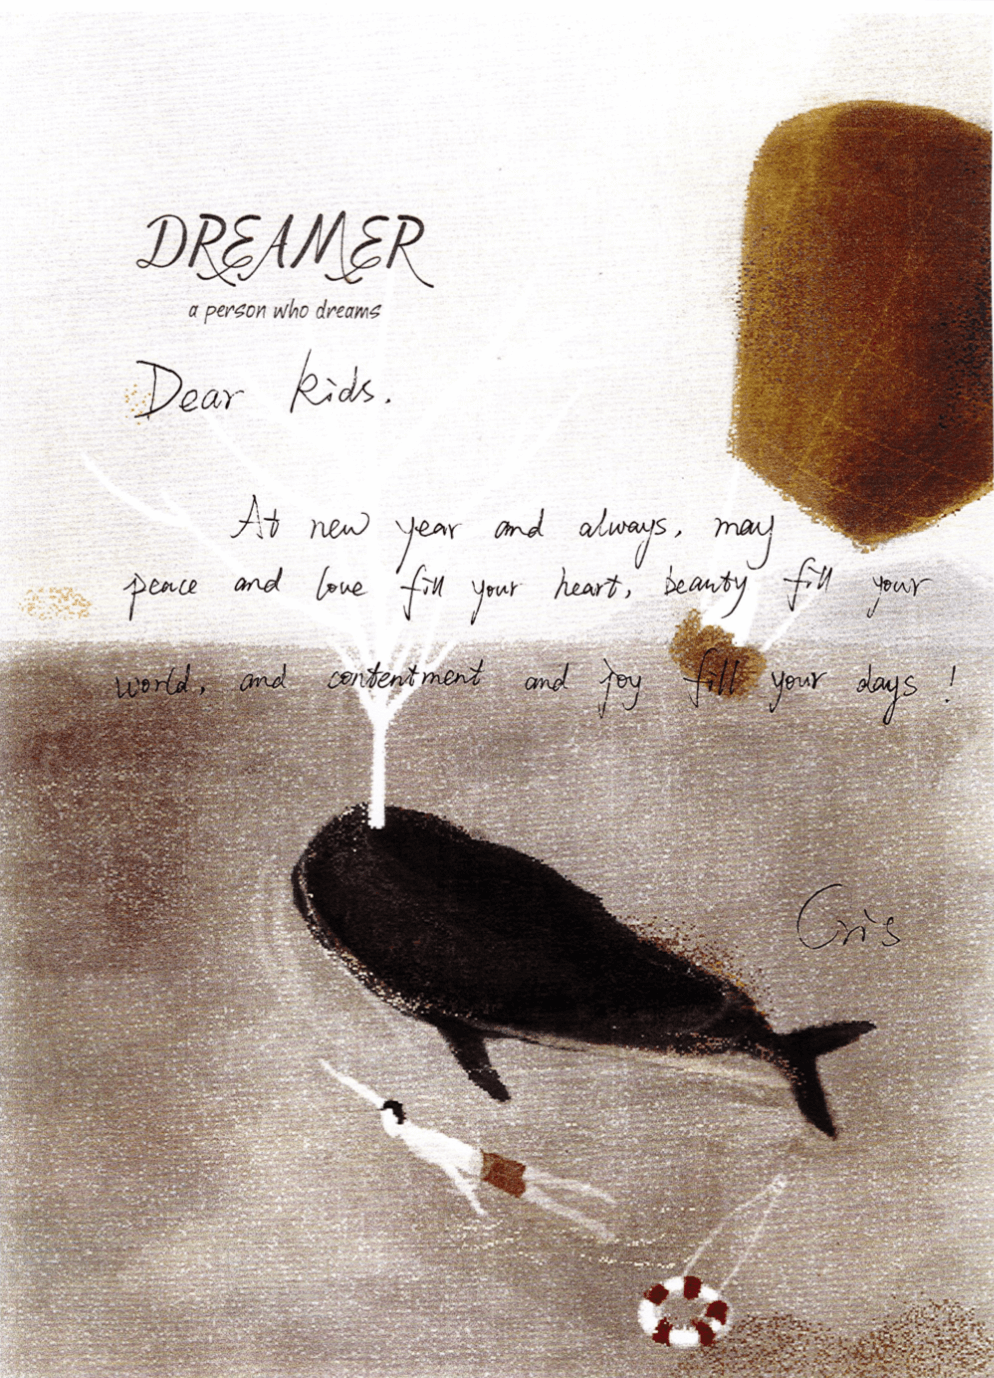 DREAMER
a person who dreams
Dear kids.
At new year and always, may
peace and love fill your heart, beauty fill your
world, and contentment and joy fill your days !
Cris